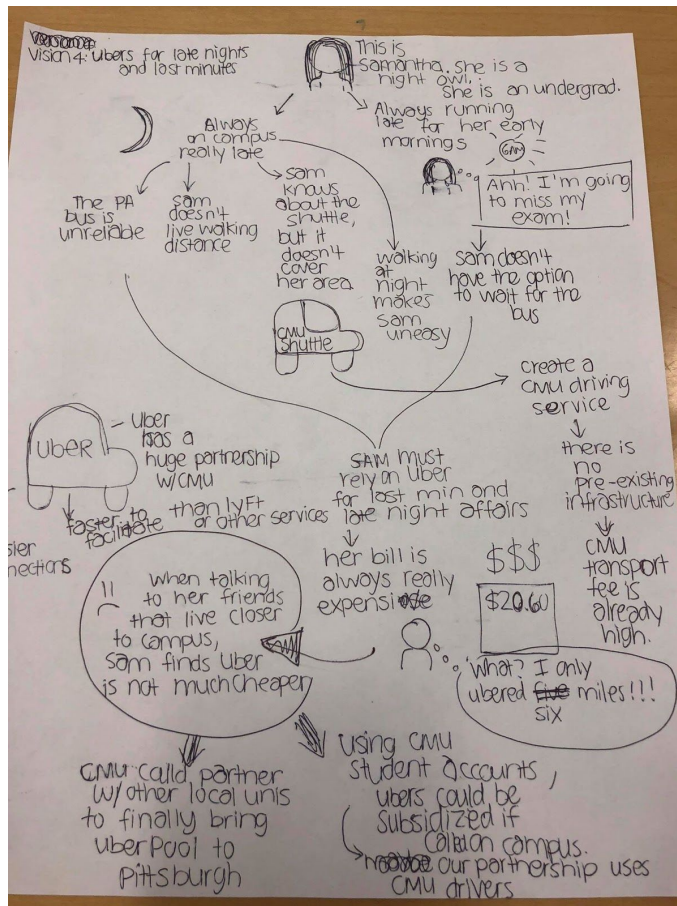 Vision 4: Ubers for late nights
and last minutes
This is
Samantha. She is a
night owl.
She is an undergrad.
Always
on campus
really late
Always running
late for her early
mornings
6AM
Ahh! I'm going
to miss my
exam!
The PA
bus is
unreliable
Sam
doesn't
live walking
distance
Sam
knows
about the
shuttle,
but it
doesn't
cover
her area
CMU
Shuttle
walking
at
night
makes
Sam
uneasy
Sam doesn't
have the option
to wait for the
bus
create a
CMU driving
service
there is
no
pre-existing
infrastructure
CMU
transport
fee is
already
high.
UBER
Uber
has a
huge partnership
w/CMU
faster to
facilitate
than lyft
or other services
SAM must
rely on Uber
for last min and
late night affairs
her bill is
always really
expensive
$$$
$20.60
What? I only
ubered five miles!!!
six
when talking
to her friends
that live closer
to campus,
Sam finds Uber
is not much cheaper
CMU could partner
w/ other local unis
to finally bring
uberPool to
Pittsburgh
using CMU
student accounts,
ubers could be
subsidized if
on campus.
our partnership uses
CMU drivers